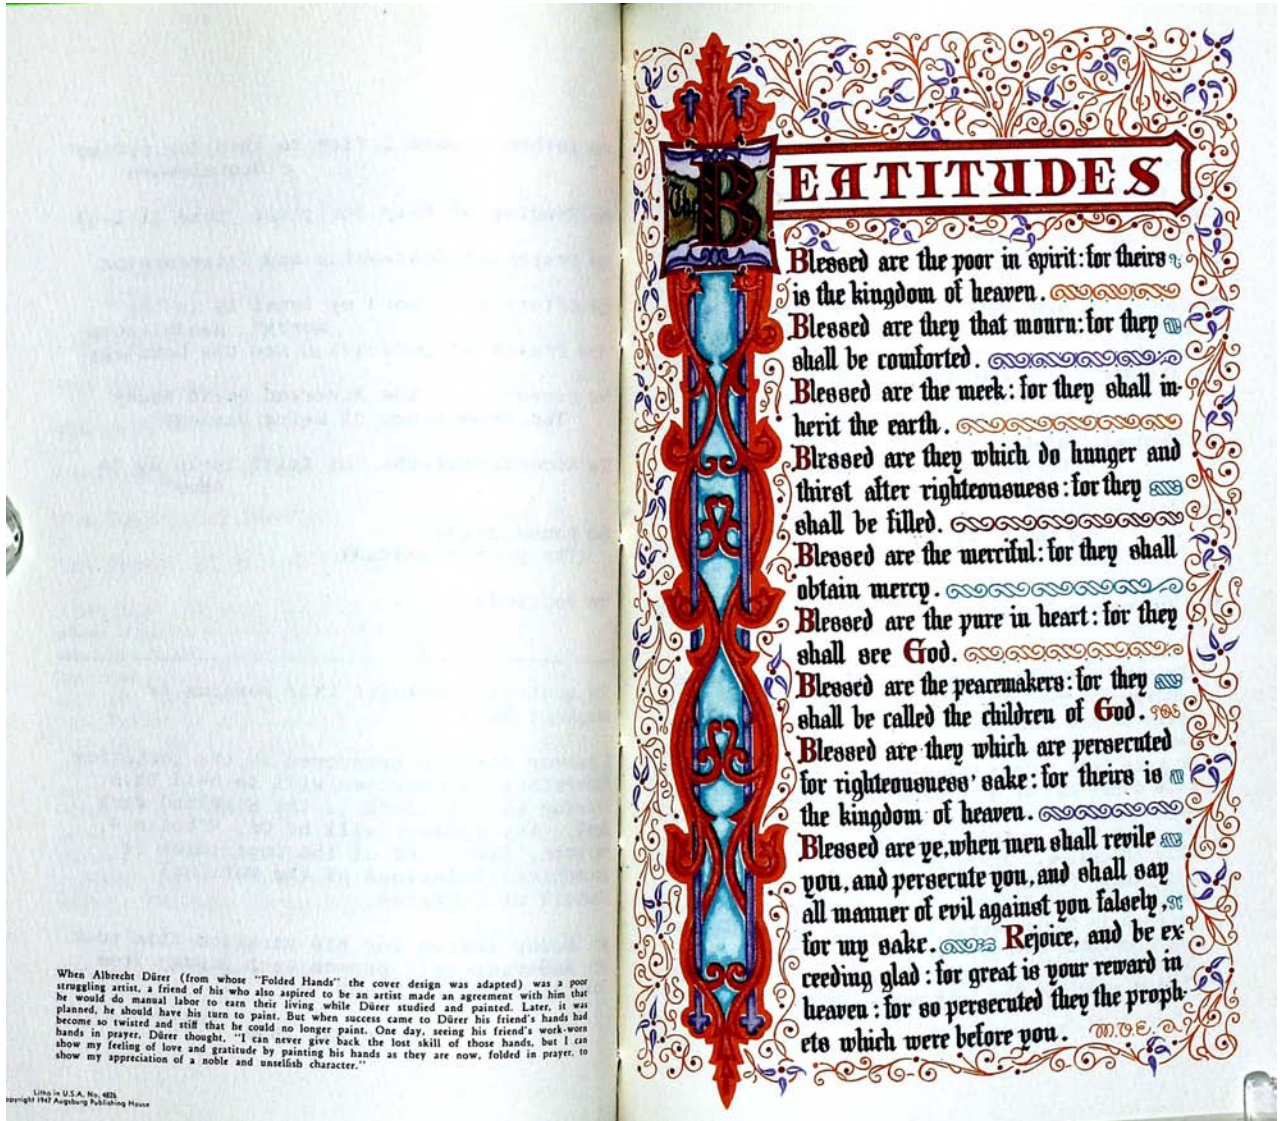 When Albrecht Dürer (from whose "Folded Hands" the cover design was adapted) was a poor
struggling artist, a friend of his who also aspired to be an artist made an agreement with him that
he would do manual labor to earn their living while Dürer studied and painted. Later, it was
planned, he should have his turn to paint. But when success came to Dürer his friend's hands had
become so twisted and stiff that he could no longer paint. One day, seeing his friend's work-worn
hands in prayer, Dürer thought, "I can never give back the lost skill of those hands, but I can
show my feeling of love and gratitude by painting his hands as they are now, folded in prayer, to
show my appreciation of a noble and unselfish character."
Litho in U.S.A. No. 4826
Copyright 1947 Augsburg Publishing House
The BEATITUDES
Blessed are the poor in spirit: for theirs
is the kingdom of heaven.
Blessed are they that mourn: for they
shall be comforted.
Blessed are the meek: for they shall in-
herit the earth.
Blessed are they which do hunger and
thirst after righteousness: for they
shall be filled.
Blessed are the merciful: for they shall
obtain mercy.
Blessed are the pure in heart: for they
shall see God.
Blessed are the peacemakers: for they
shall be called the children of God.
Blessed are they which are persecuted
for righteousness' sake: for theirs is
the kingdom of heaven.
Blessed are ye, when men shall revile
you, and persecute you, and shall say
all manner of evil against you falsely,
for my sake. Rejoice, and be ex-
ceeding glad: for great is your reward in
heaven: for so persecuted they the proph-
ets which were before you. M.O.E.